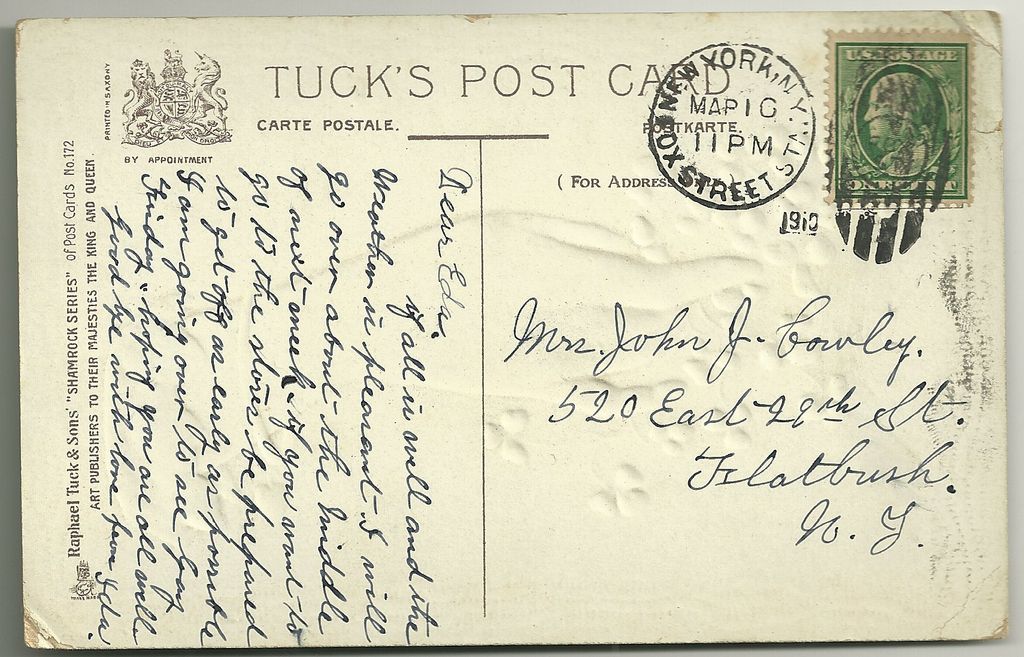 TUCK'S POST CARD
CARTE POSTALE.
POSTKARTE.
(FOR ADDRESS
PRINTED IN SAXONY
BY APPOINTMENT
DIEU ET MON DROIT
Raphael Tuck & Sons' "SHAMROCK SERIES" of Post Cards No. 172
ART PUBLISHERS TO THEIR MAJESTIES THE KING AND QUEEN.
NEW YORK, N.Y.
MAR 16
11 PM
STREET STA.
1910
U.S. POSTAGE
Dear Eda.
if all is well and the
Weather is pleasant I will
go over about the middle
of next week, if you want to
go to the stores be prepared
to get off as early as possible
I am going over to see
Friday. hoping you are all well.
Good bye with love from Ida.
Mrs. John J. Cowley.
520 East 29th St.
Flatbush.
N. Y.